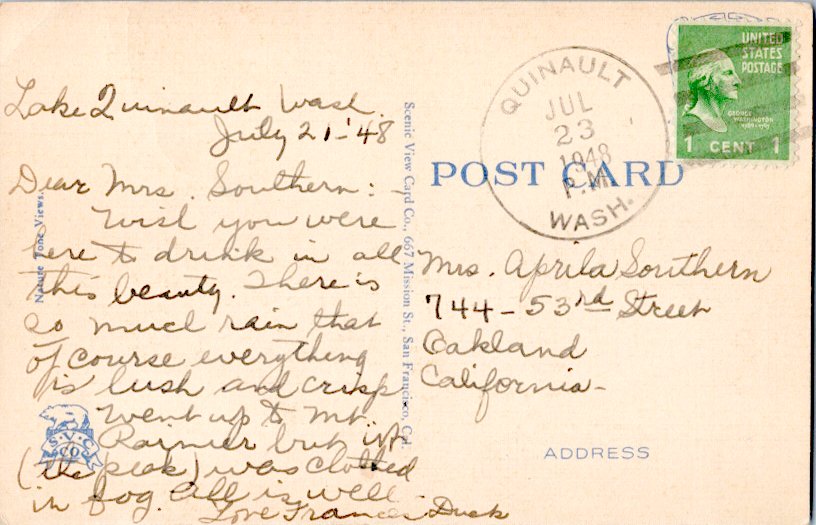 Lake Quinault Wash.
July 21-'48
Dear Mrs. Southern:-
Wish you were
here to drink in all
this beauty. There is
so much rain that
of course everything
is lush and crisp
Went up to Mt.
Rainier but it
(the peak) was clothed
in fog. All is well
Love Frances Dusk
Nature Tone Views.
S.V.C.
CO.
Scenic View Card Co., 667 Mission St., San Francisco, Cal.
POST CARD
QUINAULT
JUL
23
1948
P.M.
WASH.
UNITED
STATES
POSTAGE
GEORGE
WASHINGTON
1789-1797
1 CENT 1
Mrs. Aprila Southern
744-53rd Street
Oakland
California-
ADDRESS